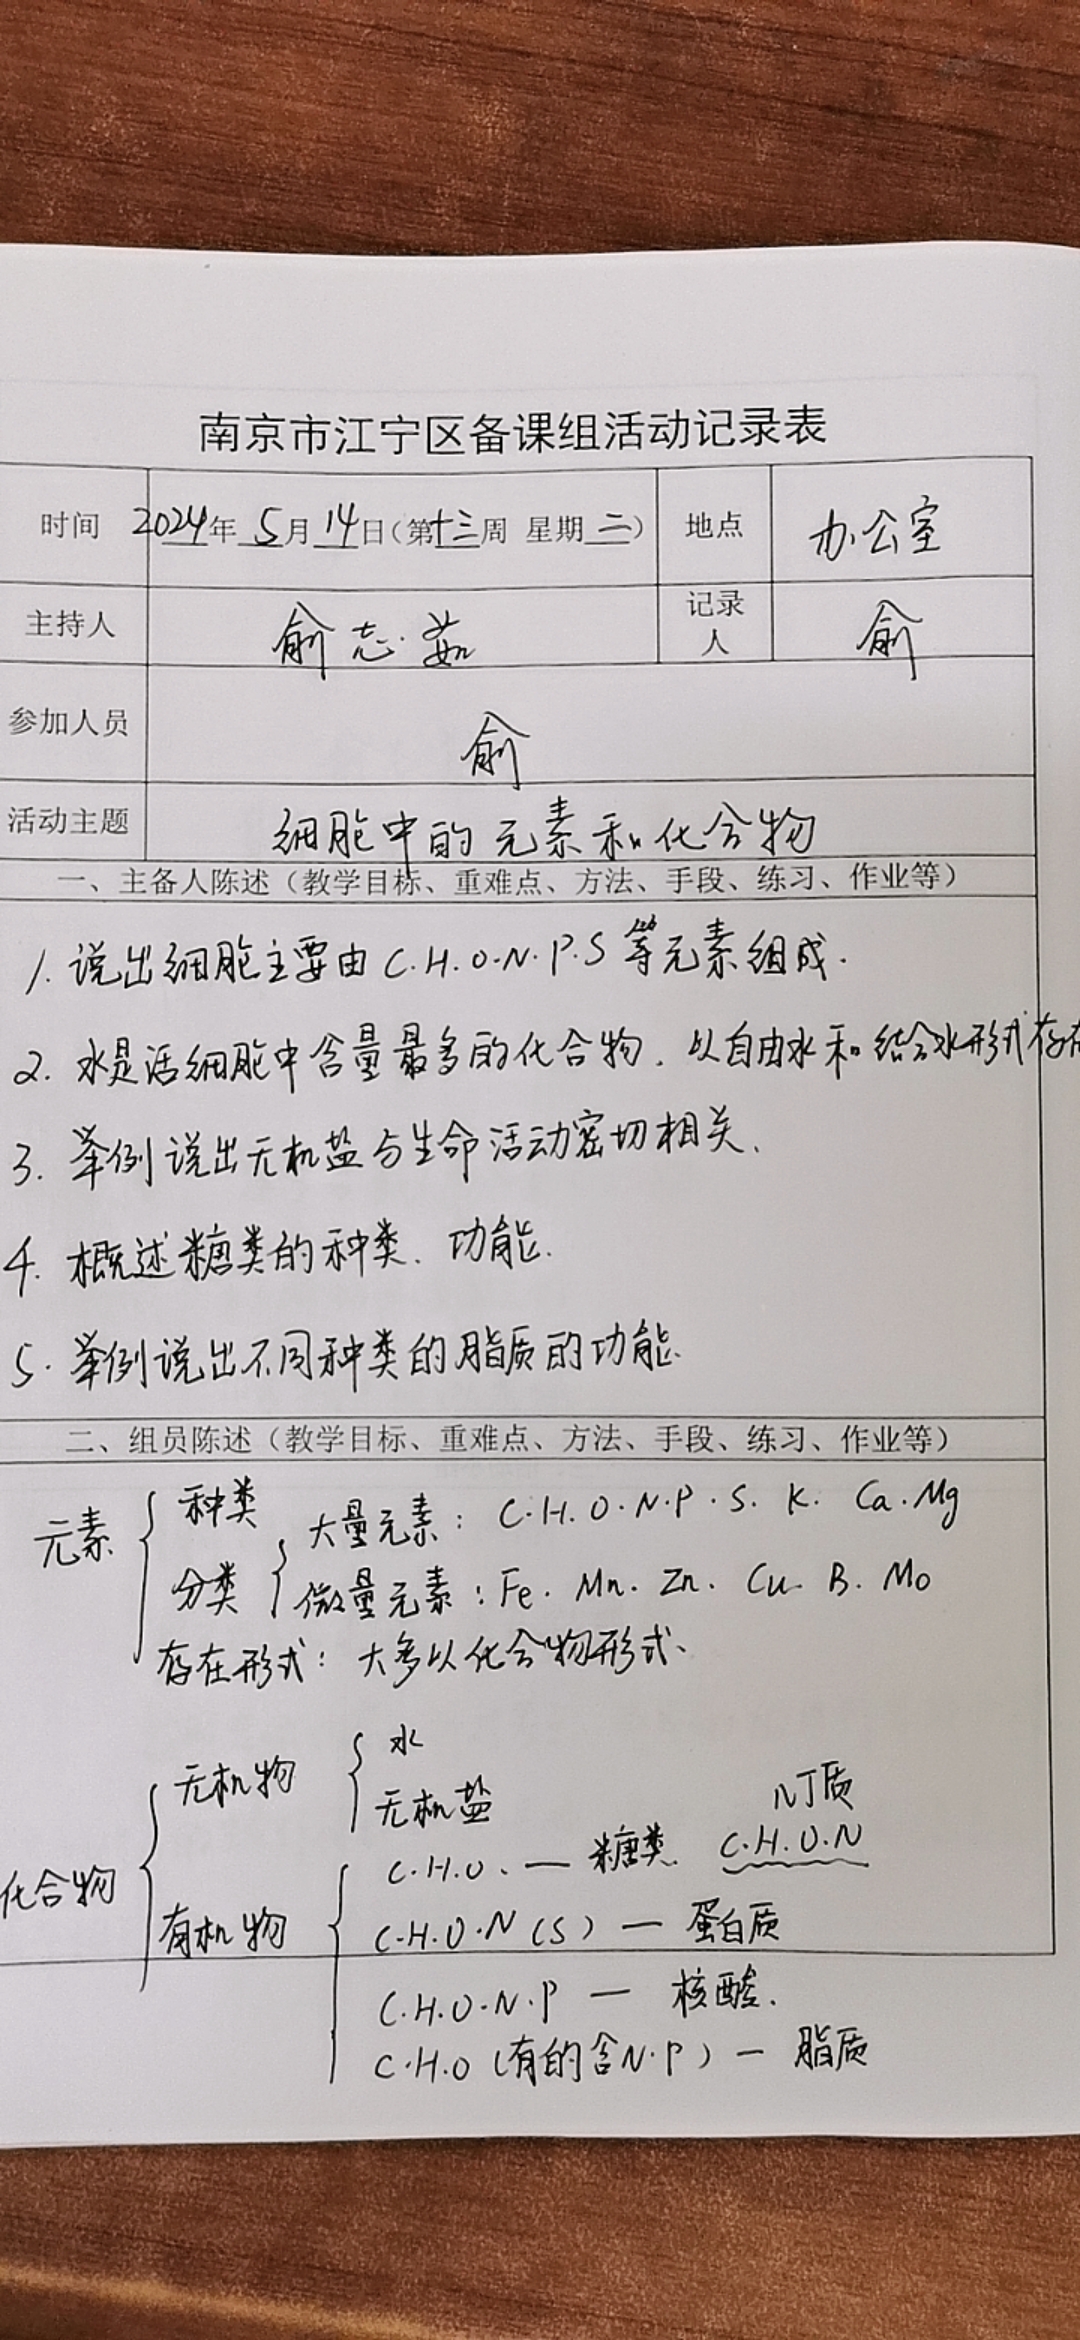 南京市江宁区备课组活动记录表
时间 2024年 5月 14日（第十三周 星期二） 地点 办公室
主持人 俞志茹 记录人 俞
参加人员 俞
活动主题 细胞中的元素和化合物
一、主备人陈述（教学目标、重难点、方法、手段、练习、作业等）
1. 说出细胞主要由C.H.O.N.P.S等元素组成.
2. 水是活细胞中含量最多的化合物、以自由水和结合水形式存在
3. 举例说出无机盐与生命活动密切相关、
4. 概述糖类的种类、功能.
5. 举例说出不同种类的脂质的功能
二、组员陈述（教学目标、重难点、方法、手段、练习、作业等）
元素 种类
分类 大量元素：C.H.O.N.P.S.K. Ca.Mg
微量元素：Fe. Mn. Zn. Cu. B. Mo
存在形式：大多以化合物形式、
化合物 无机物 水
无机盐
几丁质
有机物 C.H.O. — 糖类 C.H.O.N
C.H.O.N (S) — 蛋白质
C.H.O.N.P — 核酸.
C.H.O (有的含N.P) — 脂质